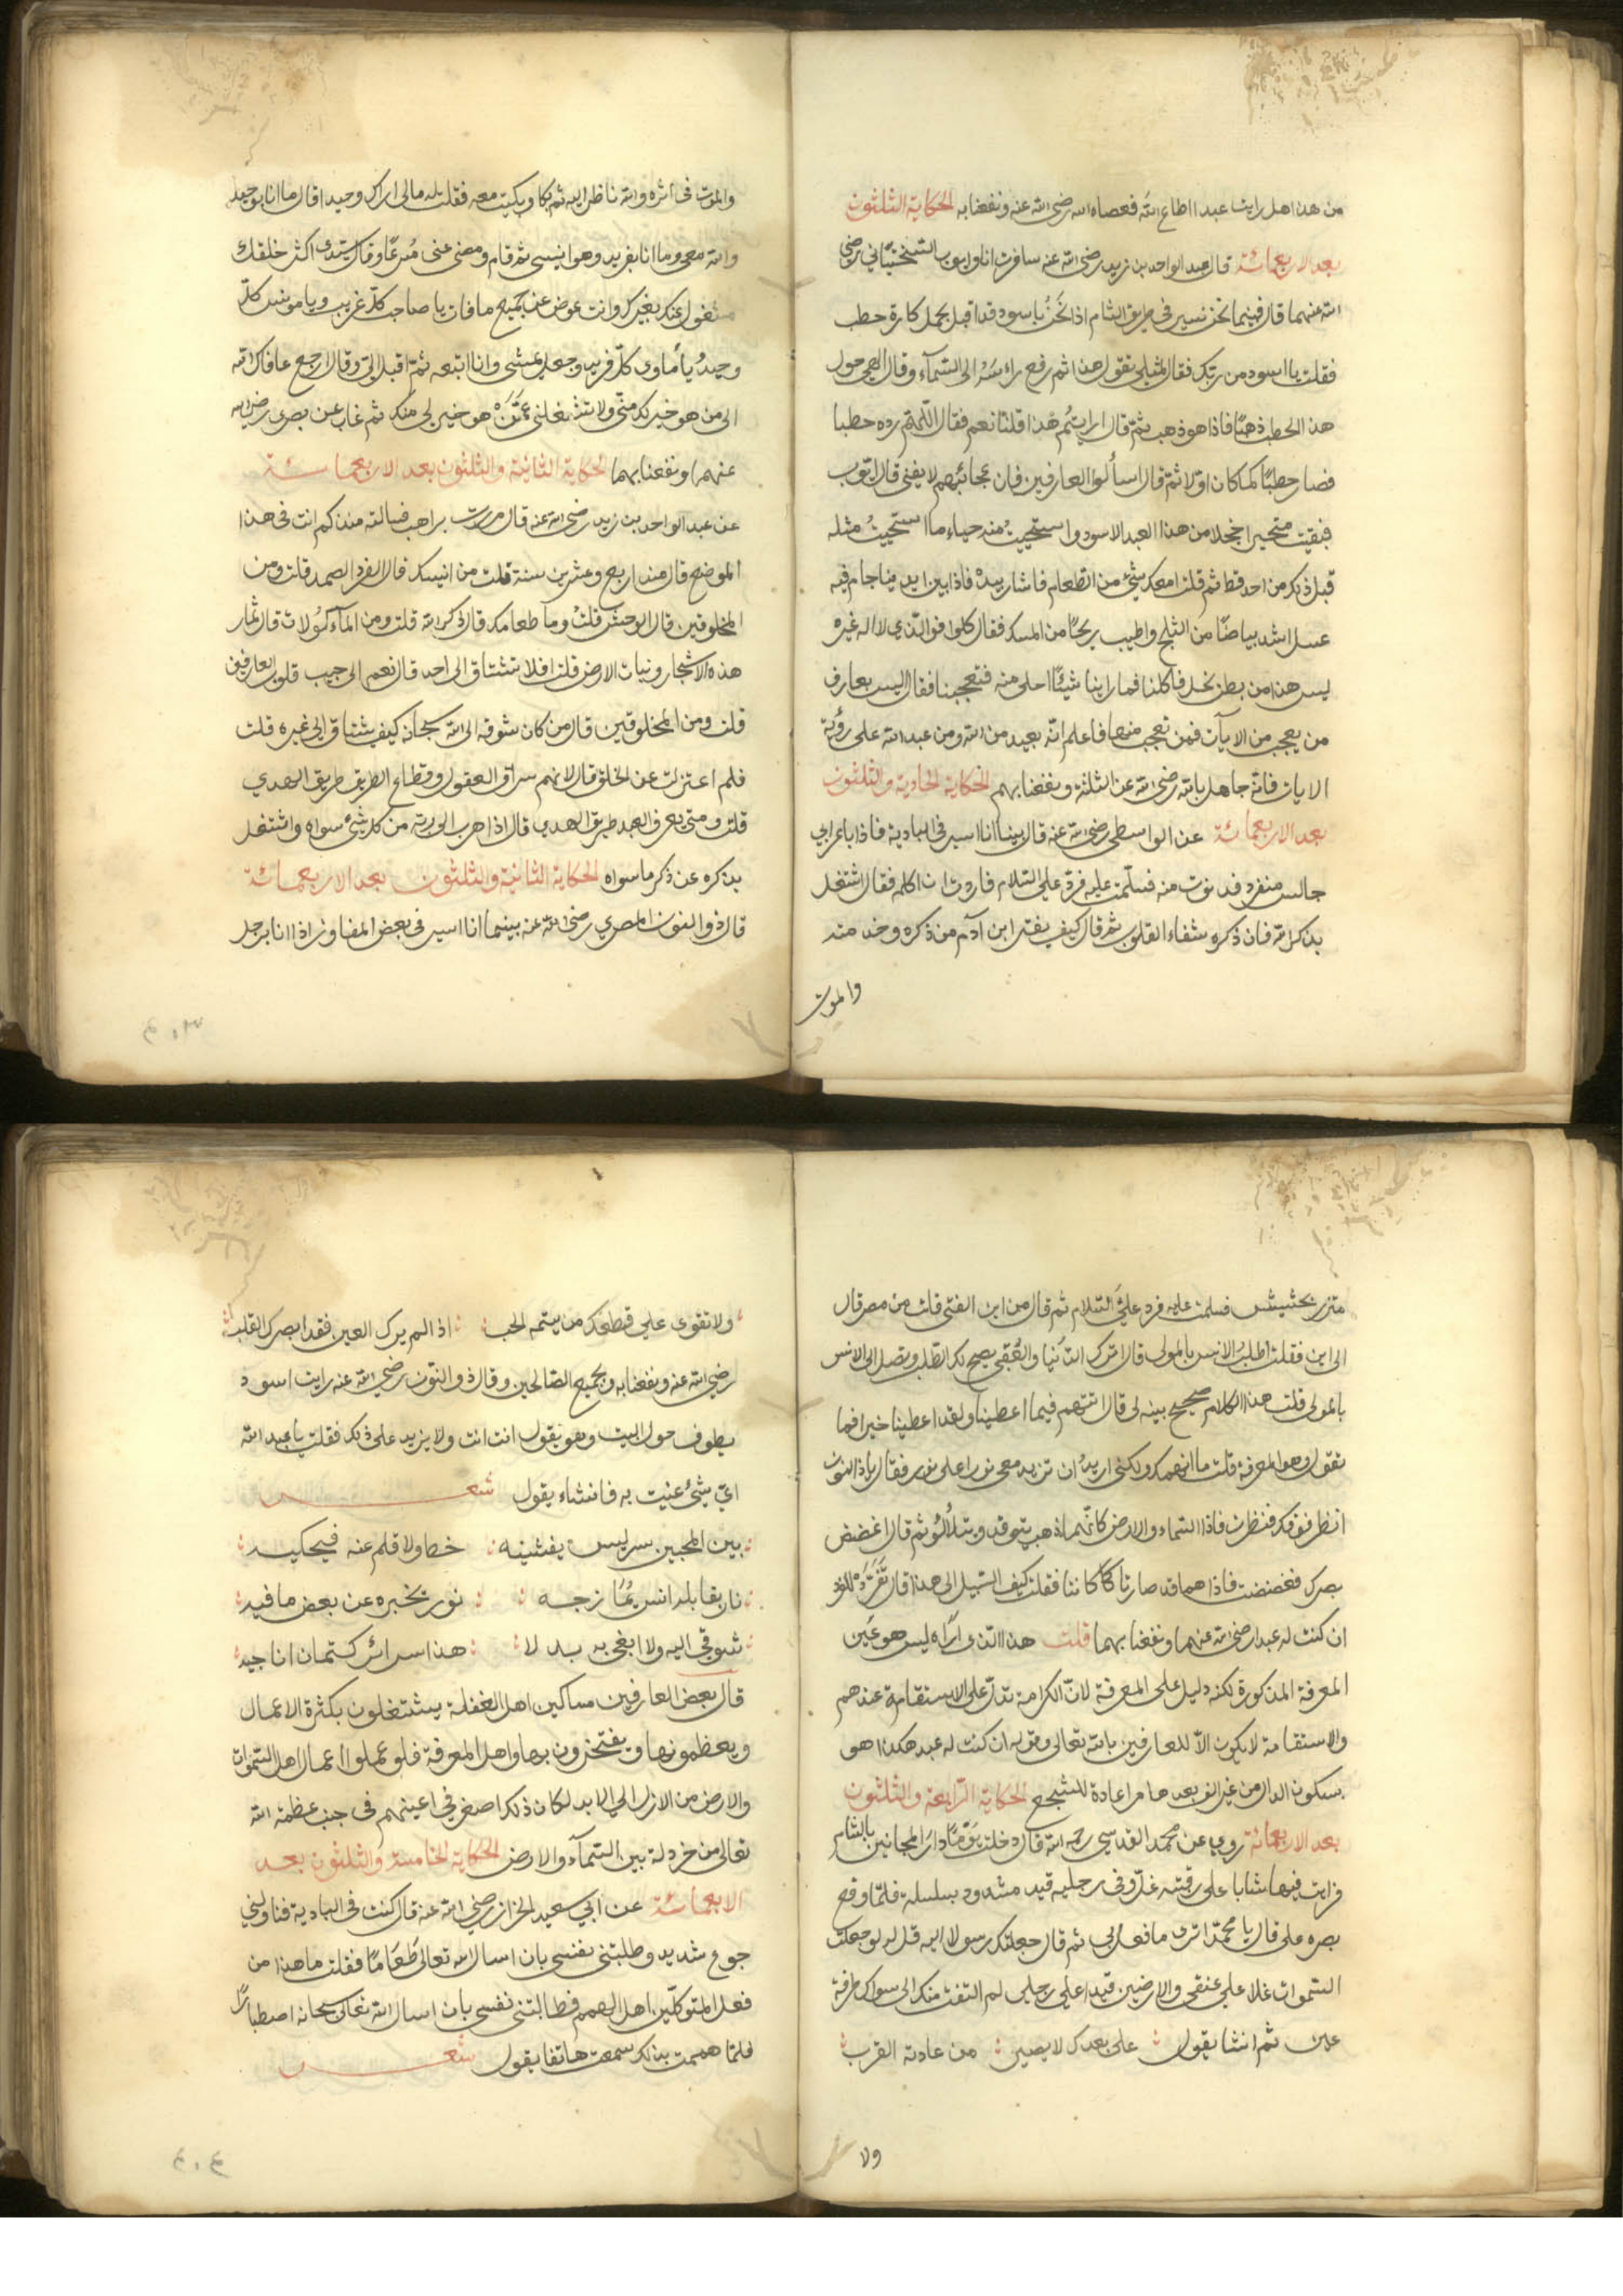 من هذا هل رايت عبدا اطاع الله فعصاه الله رضى الله عنه ونفعنا به الحكاية الثلثون
بعد الاربعمائة قال عبد الواحد بن زيد رضى الله عنه سافرت انا وايوب السختياني رضي
الله عنهما قال فبينما نحن نسير فى طريق الشام اذا نحن باسود قد اقبل يحمل كارة حطب
فقلت يا اسود من ربك فقال لمثلى تقول هذا ثم رفع راسه الى السماء وقال الهى حول
هذا الحطب ذهبا فاذا هو ذهب ثم قال ارايتم هذا قلنا نعم فقال اللهم رده حطبا
فصار حطبًا كما كان اولا ثم قال اسألوا العارفين فان عجائبهم لا يفنى قال ايوب
فبقيت متحيرا خجلا من هذا العبد الاسود واستحييت منه حياء ما استحييت مثله
قبل ذلك من احد قط ثم قلت امعك شئ من الطعام فاشار بيده فاذا بين ايدينا جام فيه
عسل اشد بياضًا من الثلج واطيب ريحًا من المسك فقال كلوا فوالذي لا اله غيره
ليس هذا من بطن نحل فاكلنا فما راينا شيئًا احلى منه فتعجبنا فقال ليس بعارف
من يعجب من الايات فمن تعجب منها فاعلم انه بعيد من الله ومن عبد الله على رؤية
الايات فانه جاهل بالله رضى الله عن الثلثة ونفعنا بهم الحكاية الحادية والثلثون
بعد الاربعمائة عن الواسطى رضى الله عنه قال بينا انا اسير فى البادية فاذا باعرابي
جالس منفرد فدنوت منه فسلمت عليه فرد على السلام فاردت ان اكلمه فقال اشتغل
بذكر الله فان ذكره شفاء القلوب ثم قال كيف يفتر ابن آدم من ذكره وخدمته
والموت
والموت فى اثره والله ناظر اليه ثم بكا وبكيت معه فقلت له مالى اراك وحيدا قال ما انا بوحيد
والله معى وما انا بفريد وهو انيسى ثم قام ومضى عنى مسرعًا وقال سيدى اكثر خلقك
مشغول عنك بغيرك وانت عوض عن جميع ما فات يا صاحب كل غريب ويا مونس كل
وحيد يا مأوى كل فريد وجعل يمشى وانا اتبعه ثم اقبل الى وقال ارجع عافاك الله
الى من هو خير لك منى ولا تشغلنى عمن هو خير لى منك ثم غاب عن بصرى رضى الله
عنهما ونفعنا بهما الحكاية الثانية والثلثون بعد الاربعمائة
عن عبد الواحد بن زيد رضى الله عنه قال مررت براهب فسالته منذ كم انت فى هذا
الموضع قال منذ اربع وعشرين سنة قلت من انيسك قال الفرد الصمد قلت ومن
المخلوقين قال الوحش قلت وما طعامك قال ذكر الله قلت ومن المأكولات قال ثمار
هذه الاشجار ونبات الارض قلت افلا تشتاق الى احد قال نعم الى حبيب قلوب العارفين
قلت ومن المخلوقين قال من كان شوقه الى الله سبحانه كيف يشتاق الى غيره قلت
فلم اعتزلت عن الخلق قال لانهم سراق العقول وقطاع الطريق طريق الهدي
قلت ومتى يعرف العبد طريق الهدى قال اذا هرب الى ربه من كل شئ سواه واشتغل
بذكره عن ذكر ما سواه الحكاية الثانية والثلثون بعد الاربعمائة
قال ذو النون المصري رضى الله عنه بينما انا اسير فى بعض المفاوز اذا انا برجل
٤٠٣
متزر بحشيش فسلمت عليه فرد على السلام ثم قال من اين الفتى قلت من مصر قال
الى اين فقلت اطلب الانس بالمولى قال اترك الدنيا والعقبى يصح لك الطلب وتصل الى الانس
بالمولى قلت هذا الكلام صحيح بينه لى قال اتتهم فيما اعطينا ولقد اعطينا خيرا فما
تقول وهو المعرفة قلت ما اتهمك ولكنى اريد ان تزيد معى نورا على نور فقال يا ذا النون
انظر فوقك فنظرت فاذا السماء والارض كانهما ذهب يتوقد ويتلألؤ ثم قال اغضض
بصرك فغضضت فاذا هما قد صارتا كما كانتا فقلت كيف السبيل الى هذا قال تفرد للفرد
ان كنت له عبدا رضى الله عنهما ونفعنا بهما قلت هذا الذى اراه ليس هو عين
المعرفة المذكورة لكنه دليل على المعرفة لان الكرامة تدل على الاستقامة عندهم
والاستقامة لا يكون الا للعارفين بالله تعالى وقوله ان كنت له عبد هكذا هو
بسكون الدال من غير الف بعدها مراعاة للسجع الحكاية الرابعة والثلثون
بعد الاربعمائة روي عن محمد القدسي رحمه الله قال دخلت يومًا دار المجانين بالشام
فرايت فيها شابا على رقبته غل وفى رجليه قيد مشدود بسلسلة فلما وقع
بصره على قال يا محمد اترى ما فعل بى ثم قال جعلتك رسولا اليه قل له لو جعلت
السموات غلا على عنقى والارضين قيدا على رجلى لم التفت منك الى سواك طرفة
عين ثم انشا يقول على بعدك لا يصبر من عادته القرب
ولا
ولا تقوى على قطعك من يتمه الحب اذا لم يرك العين فقد ابصرك القلب
رضى الله عنه ونفعنا به وبجميع الصالحين وقال ذو النون رضى الله عنه رايت اسود
يطوف حول البيت وهو يقول انت انت ولا يزيد على ذلك فقلت يا عبد الله
اي شئ عنيت به فانشاء يقول شعر
بين المحبين سر ليس يفشيه خط ولا قلم عنه فيحكيه
نار يقابلها انس يمازجه نور يخبره عن بعض ما فيه
شوقى اليه ولا ابغى به بدلا هذا سرائر كتمان اناجيه
قال بعض العارفين مساكين اهل الغفلة يشتغلون بكثرة الاعمال
ويعظمونها ويفتخرون بها واهل المعرفة فلو عملوا اعمال اهل السموات
والارض من الازل الى الابد لكان ذلك اصغر فى اعينهم فى جنب عظمة الله
تعالى من خردلة بين السماء والارض الحكاية الخامسة والثلثون بعد
الاربعمائة عن ابي سعيد الخراز رضى الله عنه قال كنت فى البادية فنا ولنى
جوع شديد وطلبتنى نفسى بان اسال الله تعالى طعامًا فقلت ما هذا من
فعل المتوكلين اهل الهمم فطالبتنى نفسى بان اسال الله تعالى سبحانه اصطبارًا
فلما هممت بذلك سمعت هاتفا يقول شعر
٤٠٤